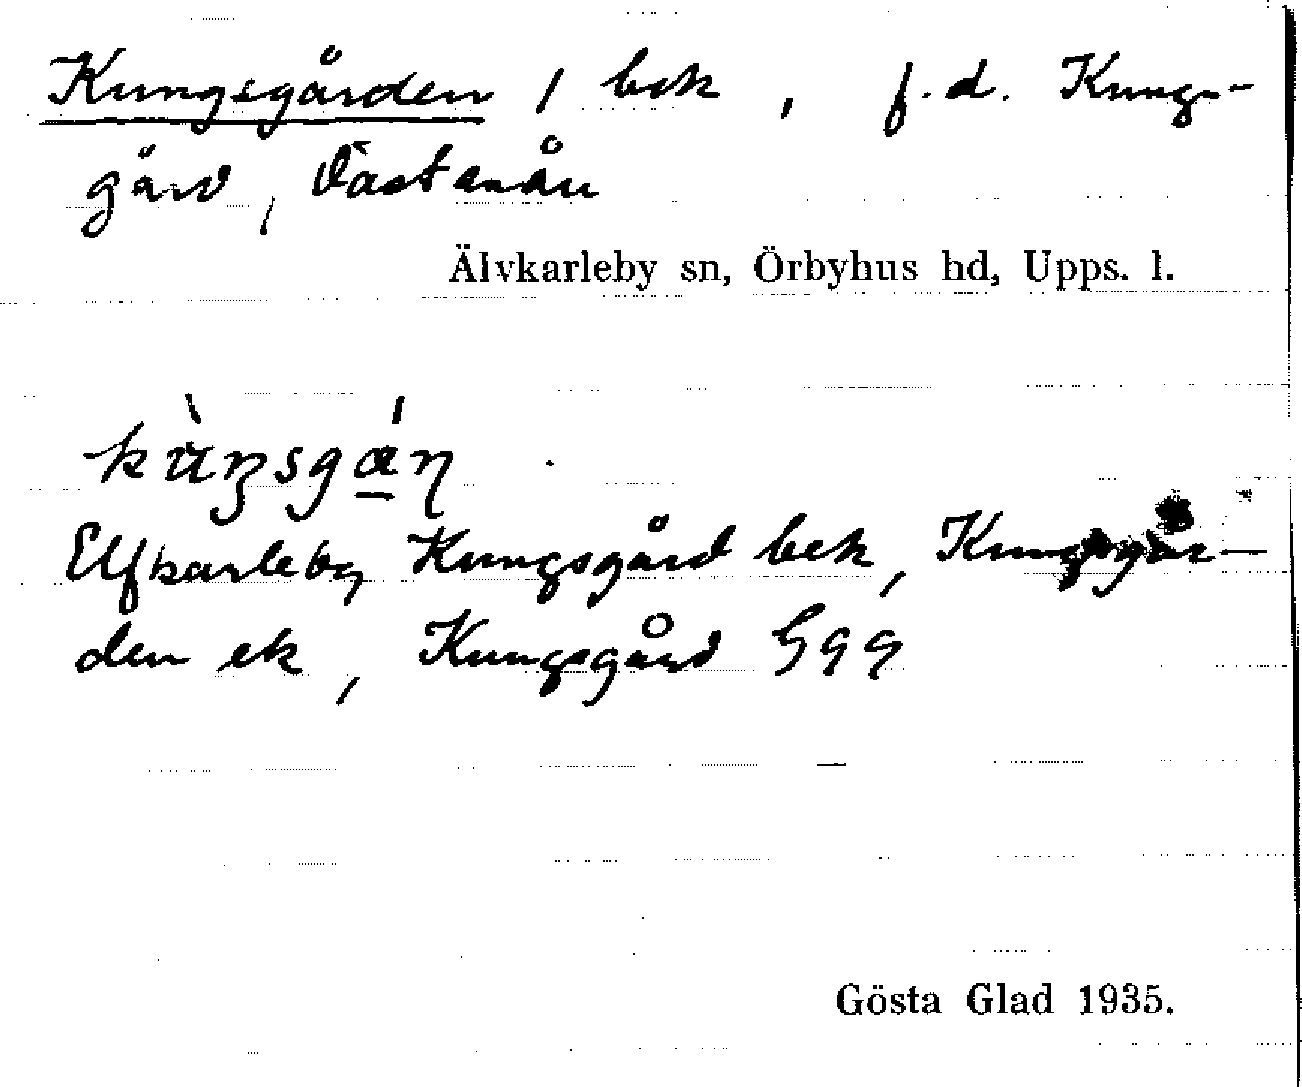 Kungsgården / bek, f.d. Kungs-
gård, Västanån
Älvkarleby sn, Örbyhus hd, Upps. l.
Elfkarleby Kungsgård bek, Kungsgår-
den ek, Kungsgård Ggg
Gösta Glad 1935.